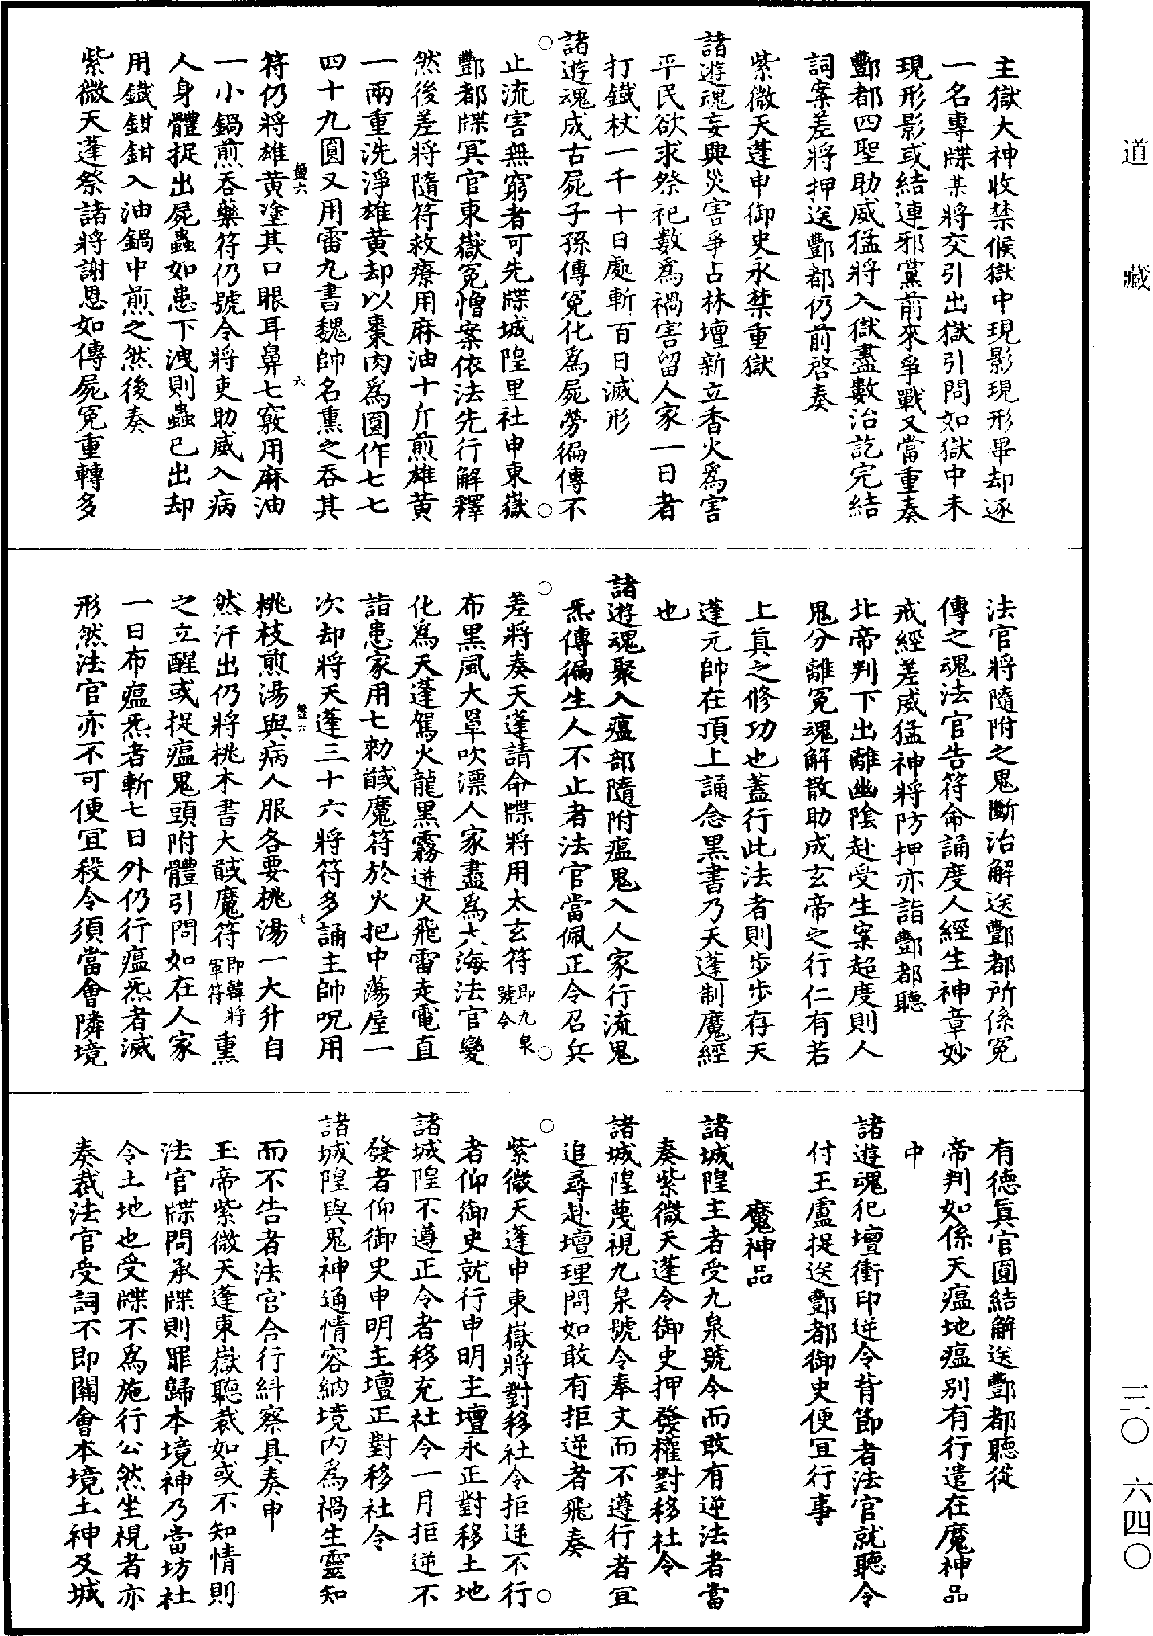 道藏
三〇 六四〇
主獄大神收禁候獄中現影現形畢却逐
一名專牒某將交引出獄引問如獄中未
現形影或結連邪黨前來爭戰又當重奏
酆都四聖助威猛將入獄盡數治訖完結
詞案差將押送酆都仍前啓奏
紫微天蓬申御史永禁重獄
諸遊魂妄興災害爭占林壇新立香火爲害
平民欲求祭祀數爲禍害留人家一日者
打鐵杖一千十日處斬百日滅形
諸遊魂成古屍子孫傳冤化爲屍勞徧傳不
止流害無窮者可先牒城隍里社申東嶽
酆都牒冥官東嶽冤憎案依法先行解釋
然後差將隨符救療用麻油十斤煎雄黃
一兩重洗淨雄黃却以棗肉爲圓作七七
四十九圓又用雷九書魏帥名熏之吞其
符仍將雄黃塗其口眼耳鼻七竅用麻油
一小鍋煎吞藥符仍號令將吏助威入病
人身體捉出屍蟲如患下洩則蟲已出却
用鐵鉗鉗入油鍋中煎之然後奏
紫微天蓬祭諸將謝恩如傳屍冤重轉多
法官將隨附之鬼斷治解送酆都所係冤
傳之魂法官告符命誦度人經生神章妙
戒經差威猛神將防押亦詣酆都聽
北帝判下出離幽陰赴受生案超度則人
鬼分離冤魂解散助成玄帝之行仁有若
上眞之修功也蓋行此法者則步步存天
蓬元帥在頂上誦念黑書乃天蓬制魔經
也
諸遊魂聚入瘟部隨附瘟鬼入人家行流鬼
炁傳徧生人不止者法官當佩正令召兵
差將奏天蓬請命牒將用太玄符即九泉號令
布黑風大罩吹漂人家盡爲大海法官變
化爲天蓬駕火龍黑霧迸火飛雷走電直
詣患家用七勑馘魔符於火把中蕩屋一
次却將天蓬三十六將符多誦主帥呪用
桃枝煎湯與病人服各要桃湯一大升自
然汗出仍將桃木書大馘魔符即韓將軍符熏
之立醒或捉瘟鬼頭附體引問如在人家
一日布瘟炁者斬七日外仍行瘟炁者滅
形然法官亦不可便宜殺令須當會隣境
有德眞官圓結解送酆都聽從
帝判如係天瘟地瘟別有行遣在魔神品
中
諸遊魂犯壇衝印逆令背節者法官就聽令
付王盧捉送酆都御史便宜行事
魔神品
諸城隍主者受九泉號令而敢有逆法者當
奏紫微天蓬令御史押發權對移社令
諸城隍蔑視九泉號令奉文而不遵行者宜
追尋赴壇理問如敢有拒逆者飛奏
紫微天蓬申東嶽將對移社令拒逆不行
者仰御史就行申明主壇永正對移土地
諸城隍不遵正令者移充社令一月拒逆不
發者仰御史申明主壇正對移社令
諸城隍與鬼神通情容納境內爲禍生靈知
而不告者法官合行糾察具奏申
玉帝紫微天蓬東嶽聽裁如或不知情則
法官牒問承牒則罪歸本境神乃當坊社
令土地也受牒不爲施行公然坐視者亦
奏裁法官受詞不即關會本境土神及城